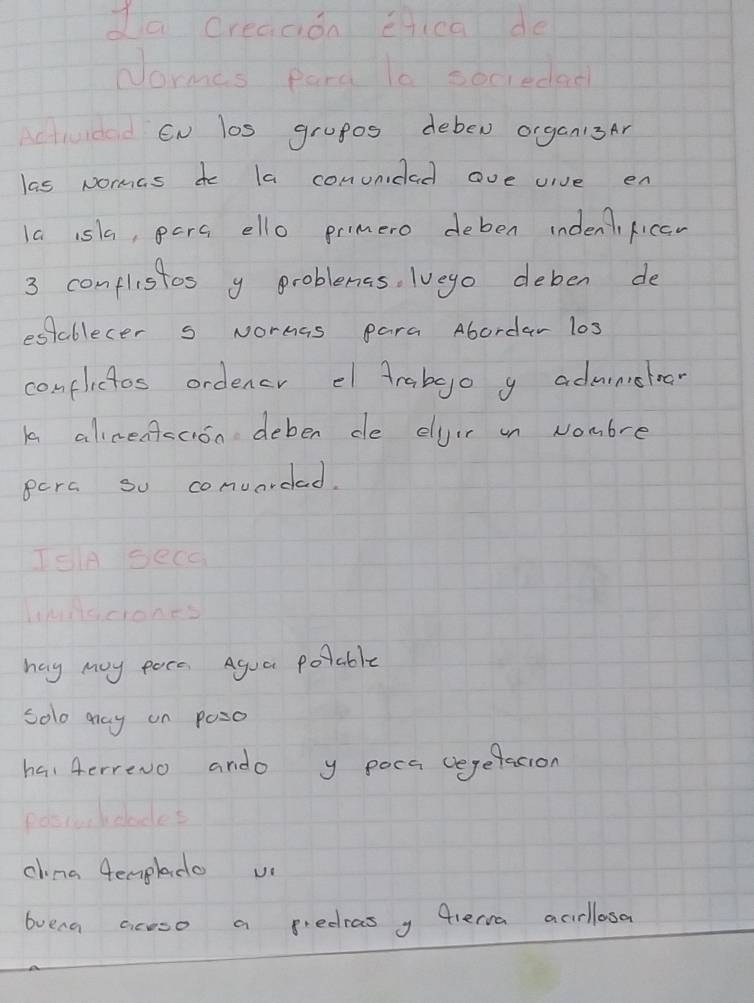 La creación ética de
Normas para la sociedad
Actividad EN los grupos deben organizAr
las Normas de la comunidad que vive en
la isla, para ello primero deben indentificar
3 conflistos y problemas. luego deben de
establecer 5 Normas para Abordar los
conflictos ordenar el trabajo y administrar
la alimentación deben de elejir un Nombre
para su comunidad.
IslA seca
limitaciones
hay muy poca Agua potable
solo hay un poso
hai terreno arido y poca vegetacion
posibilidades
clima templado
buena acceso a piedras y tierra acirllosa